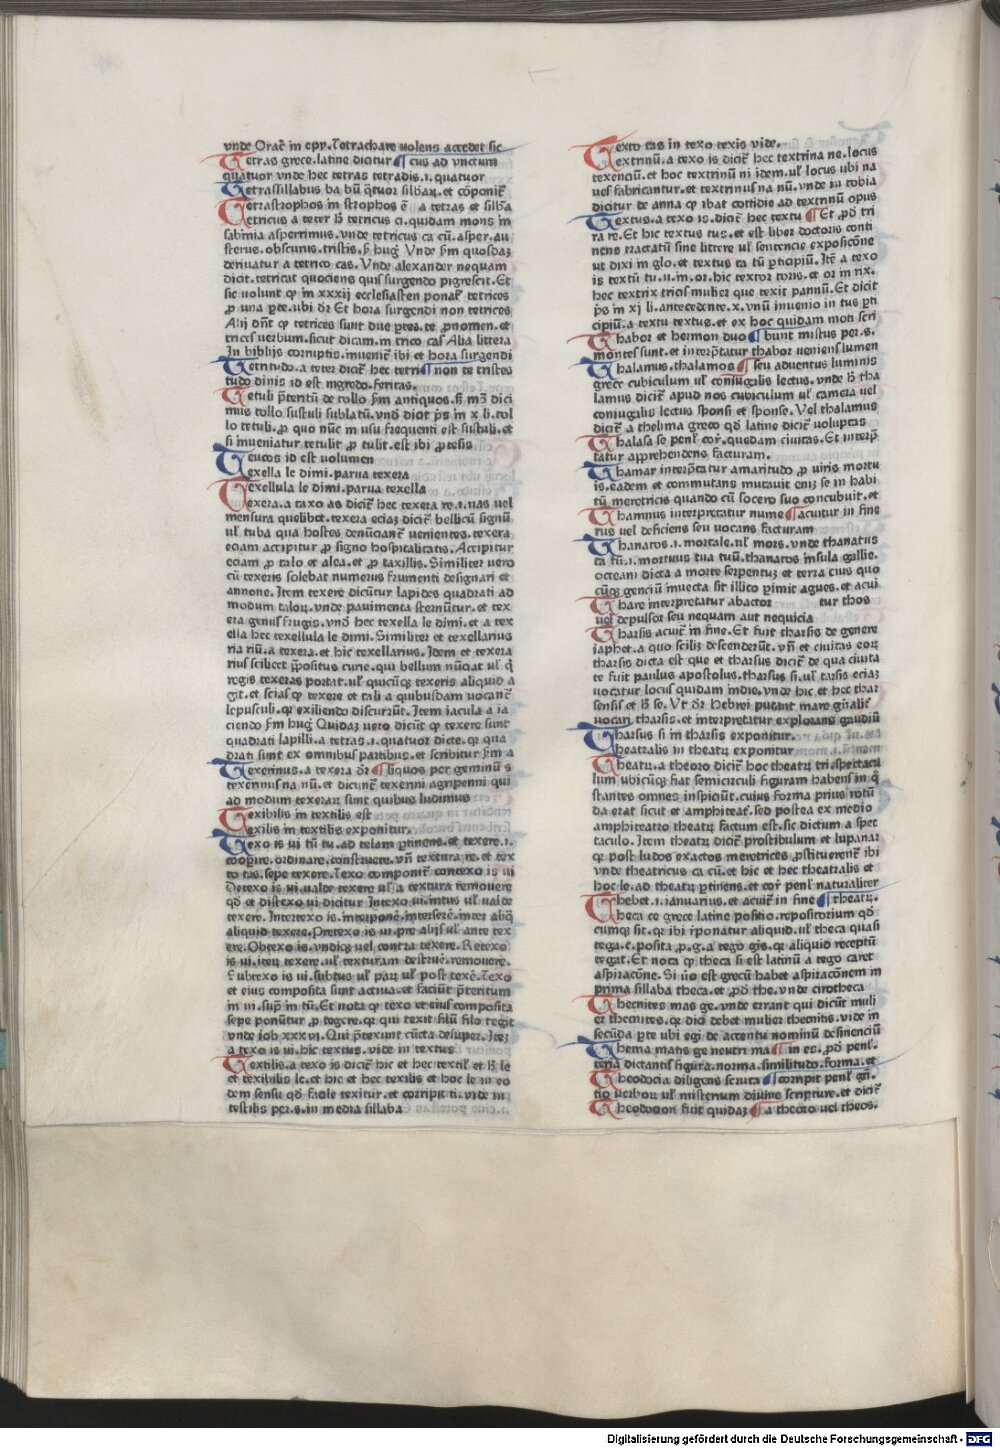 vnde Orac̃ in epy. Tetrachare uolens accedet sic
Tetras grece. latine dicitur ¶ cus ad vnctum
quatuor vnde hec tetras tetradis .i. quatuor
Tetrasillabus ba bū q̃tuoꝝ silbaꝝ. et cōponit̃
Tetrastrophos in strophos ē a tetras et silb̃a
Tetricus a teter ꝶ tetricus ci. quidam mons in
sabinia asperrimus. vnde tetricus ca cū. asper. au
sterus. obscurus. tristis. ẜm hug̃ Vnde ẜm quosdaꝫ
deriuatur a tetrico cas. Vnde alexander nequam
dicit. tetricat quociens quis surgendo pigrescit. Et
sic uolunt ꝙ in xxxij ecclesiasten ponat̃ tetrices
ꝓ una ꝑte. ubi dr̃ Et hora surgendi non tetrices
Alij dñt ꝙ tetrices sunt due ꝑtes. te ꝓnomen. et
trices uerbum. sicut dicam. in trico cas̃ Alia littera
In biblijs corruptis. inuenit̃ ibi et hora surgendi
Tetritudo. a teter dicit̃ hec tetri ¶ non te tristes
tudo dinis id est nigredo. feritas.
Tetuli p̃teritū de tollo ẜm antiquos. si mō dici
mus tollo sustuli sublatū. vnd̃ dicit p̃s in x li. tol
lo tetuli. ꝓ quo nūc in usu frequenti est sustuli. et
si inueniatur tetulit ꝓ tulit. est ibi ꝓtesis
Teucos id est volumen
Texella le dimi. parua texera
Texellula le dimi. parua texella
Texera. a taxo as dicit̃ hec texera re .i. uas uel
mensura quelibet. texera eciaꝫ dicit̃ bellicū signū
ul̃ tuba qua hostes denūciant̃ uenientes. texera
eciam accipitur ꝓ signo hospitalitatis. Accipitur
eciam ꝓ talo et alea. et ꝓ taxillis. Similiter uero
cū texeris solebat numerus frumenti designari et
annone. Item texere dicūtur lapides quadrati ad
modum taloꝝ. vnde pauimenta sternūtur. et tex
era genus frugis. vnd̃ hec texella le dimi. et a tex
ella hec texellula le dimi. Similiter et texellarius
ria riū. a texera. et hic texellarius. Idem et texera
rius scilicet p̃positus curie. qui bellum nūciat ul̃ q̃
regis texeras portat. ul̃ quicūꝙ texeris aliquid a
git. et scias ꝙ texere et tali a quibusdam uocant̃
lepusculi. qꝛ exiliendo discurrūt. Item iacula a ia
ciendo ẜm hug̃ Quidaꝫ uero dicūt ꝙ texere sunt
quadrati lapilli. a tetras .i. quatuor dicte. qꝛ qua
drati sunt ex omnibus partibus. et scribitur ẜm a
Texerinus. a texera dr̃ ¶ liquos per geminū s
texerinus na nū. et dicunt̃ texerini agripenni qui
ad modum texeraꝝ sunt quibus ludimus
Texibilis in textilis est
Texilis in textilis exponitur.
Texo is ui tū tu. ad telam ꝑtinens. et texere .i.
coopire. ordinare. construere. vñ textura re. et tex
to tas. sepe texere. Texo componit̃ contexo is ui
Detexo is ui. ualde texere ul̃ a textura remouere
qd̃ et distexo ui dicitur Intexo ui. intus ul̃ ualde
texere. Intertexo is. interponē. interserē. inter aliq̃
aliquid texere. Pretexo is ui. pre alijs ul̃ ante tex
ere. Obtexo is. vndiqꝫ uel contra texere. Retexo
is ui. iteꝝ texere. ul̃ texturam destruē. remouere.
Subtexo is ui. subtus ul̃ paꝝ ul̃ post texē. Texo
et eius composita sunt actiua. et faciūt p̃teritum
in ui. sup̃ in tū. Et nota ꝙ texo et eius composita
sepe ponūtur ꝓ tegere. qꝛ qui texit filū filo tegit
vnde iob xxxvi. Qui p̃texunt cūcta desuper. Iteꝫ
a texo is ui. hic textus. vide in textus
Textilis. a texo is dicit̃ hic et hec textil̃ et ꝶ le
et texibilis le. et hic et hec texilis et hoc le in eo
dem sensu qd̃ facile texitur. et corripit ti. vnde in
testilis per .s. in media sillaba
Texto tas in texo texis vide.
Textrinū. a texo is dicit̃ hec textrina ne. locus
texenciū. et hoc textrinū ni idem. ul̃ locus ubi na
ues fabricantur. et textrinus na nū. vnde in tobia
dicitur de anna ꝙ ibat cottidie ad textrinū opus
Textus. a texo is. dicit̃ hec textu ¶ Et ꝓd̃ tri
ra re. Et hic textus tus. et est liber doctoris conti
nens tractatū sine littere ul̃ sentencie exposicōne
ut dixi in glo. et textus ta tū ꝑticipiū. Itē a texo
is textū tu. u. in. or. hic textor toris. et or in rix.
hec textrix tricis mulier que texit pannū. Et dicit
p̃s in xj li. antecedente. x. vnū inuenio in tus ꝑti
cipiū. a textu textus. et ex hoc quidam moti scri
Thabor et hermon duo ¶ bunt mistus per .s.
montes sunt. et interp̃tatur thabor ueniens lumen
Thalamus. thalamos ¶ seu aduentus luminis
grece cubiculum ul̃ coniugalis lectus. vnde ꝶ tha
lamus dicit̃ apud nos cubiculum ul̃ camera uel
coniugalis lectus sponsi et sponse. Vel thalamus
dicit̃ a thelima greco qd̃ latine dicit̃ voluptas
Thalasa se penl̃ cor̃. quedam ciuitas. Et interp̃
tatur apprehendens facturam.
Thamar interp̃tatur amaritudo ꝓ uiris mortu
is. eadem et commutans mutauit eniꝫ se in habi
tū meretricis quando cū socero suo concubuit. et
Thamnus interpretatur nume ¶ acuitur in fine
rus uel deficiens seu uocans facturam
Thanatos .i. mortale. ul̃ mors. vnde thanatus
ta tū .i. mortuus tua tuū. thanatos insula gallie.
occeani dicta a morte serpentuꝫ et terra eius quo
cūqꝫ genciū inuecta sit illico ꝑimit agues. et acui
Thare interpretatur abactor tur thos
uel depulsor seu nequam aut nequicia
Tharsis acuit̃ in fine. Et fuit tharsis de genere
iaphet. a quo scilicꝫ descenderūt. vñ et ciuitas eoꝝ
tharsis dicta est que et tharsus dicit̃ de qua ciuita
te fuit paulus apostolus. tharsus si. ul̃ tarsis eciaꝫ
uocatur locus quidam indie. vnde hic et hec thar
sensis et ꝶ se. Vt dr̃ Hebrei putant mare gñalit̃
uocari tharsis. et interpretatur explorans gaudiū
Tharsus si in tharsis exponitur.
Theatralis in theatꝝ exponitur
Theatꝝ. a theoro dicit̃ hoc theatꝝ tri. spectacu
lum ubicūqꝫ fiat semicirculi figuram habens in q̃
stantes omnes inspiciūt. cuius forma prius rotū
da erat sicut et amphiteat̃. sed postea ex medio
amphiteatro theatꝝ factum est. sic dictum a spec
taculo. Item theatꝝ dicit̃ prostibulum et lupanar
qꝛ post ludos exactos meretrices ꝓstituerent̃ ibi
vnde theatricus ca cū. et hic et hec theatralis et
hoc le. ad theatꝝ ꝑtinens. et cor̃ penl̃ naturaliter
Thebet .i. ianuarius. et acuit̃ in fine ¶ theatꝝ.
Theca ce grece latine positio. repositorium qd̃
cumqꝫ sit. qꝛ ibi ponatur aliquid. ul̃ theca quasi
tega. c. posita ꝓ .g. a tego gis. qꝛ aliquid receptū
tegat. Et nota ꝙ theca si est latinū a tego caret
aspiracōne. Si ūo est grecū habet aspiracōnem in
prima sillaba theca. et ꝓd̃ the. vnde cirotheca
Thecnites mas ge. vnde errant qui dicūt muli
er thecnites. qꝛ dici debet mulier thecnitis. vide in
secūda ꝑte ubi egi de accentu nominū desinenciū
Thema matis ge neutri ma ¶ in es. ꝓd̃ penl̃.
teria dictantis figura. norma. similitudo. forma. et
Theodocia diligens scruta ¶ corripit penl̃ gñ.
tio uerboꝝ ul̃ misterium diuine scripture. et dicit̃
Theodocion fuit quidaꝫ ¶ a theoro uel theos.
Digitalisierung gefördert durch die Deutsche Forschungsgemeinschaft - DFG